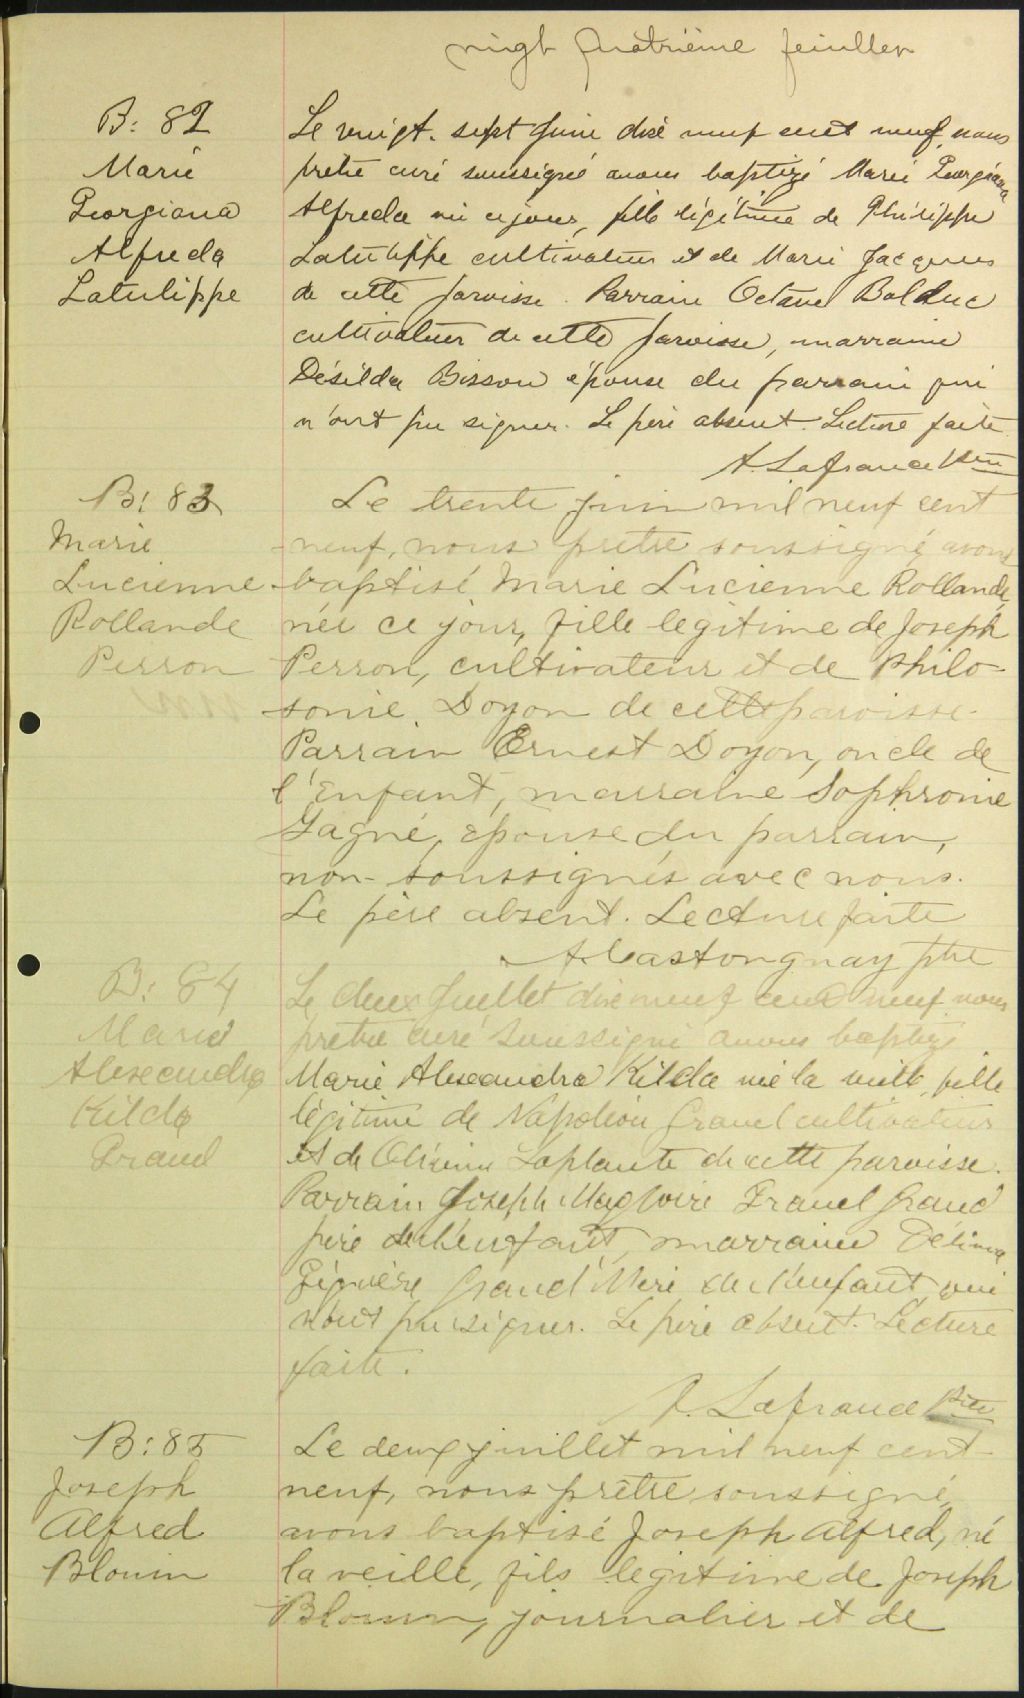 vingt quatrième feuillet
B: 82
Marie
Georgiana
Alfreda
Latulippe
Le vingt-sept Juin dixe neuf cent neuf, nous
prêtre curé soussigné avons baptizé Marie Georgiana
Alfreda née ce jour, fille légitime de Philippe
Latulippe cultivateur et de Marie Jacques
de cette paroisse. Parrain Octave Bolduc
cultivateur de cette paroisse, marraine
Désilda Bisson épouse du parrain qui
n'ont pu signer. Le père absent. Lecture faite
A. Lafrance Ptre
B: 83
Marie
Lucienne
Rollande
Perron
Le trente juin mil neuf cent
neuf, nous prêtre soussigné, avons
baptisé Marie Lucienne Rollande,
née ce jour, fille legitime de Joseph
Perron, cultivateur et de Philo-
sonie Doyon de cette paroisse.
Parrain Ernest Doyon, oncle de
l'Enfant, marraine Sophronie
Gagné, épouse du parrain,
non-soussignés avec nous.
Le père absent. Lecture faite
A. Castonguay ptre
B: 84
Marie
Alexandra
Kilda
Gravel
Le deux Juillet dixe neuf cent neuf nous
prêtre curé soussigné avons baptizé
Marie Alexandra Kilda née la veille, fille
légitime de Napoléon Gravel cultivateur
et de Olivine Laplante de cette paroisse.
Parrain Joseph Magloire Gravel Grand
père de l'enfant, marraine Délima
Giguère Grand'Mère de l'enfant qui
n'ont pu signer. Le père absent. Lecture
faite.
A. Lafrance Ptre
B: 85
Joseph
Alfred
Blouin
Le deux juillet mil neuf cent
neuf, nous prêtre soussigné,
avons baptisé Joseph Alfred, né
la veille, fils legitime de Joseph
Blouin, journalier et de